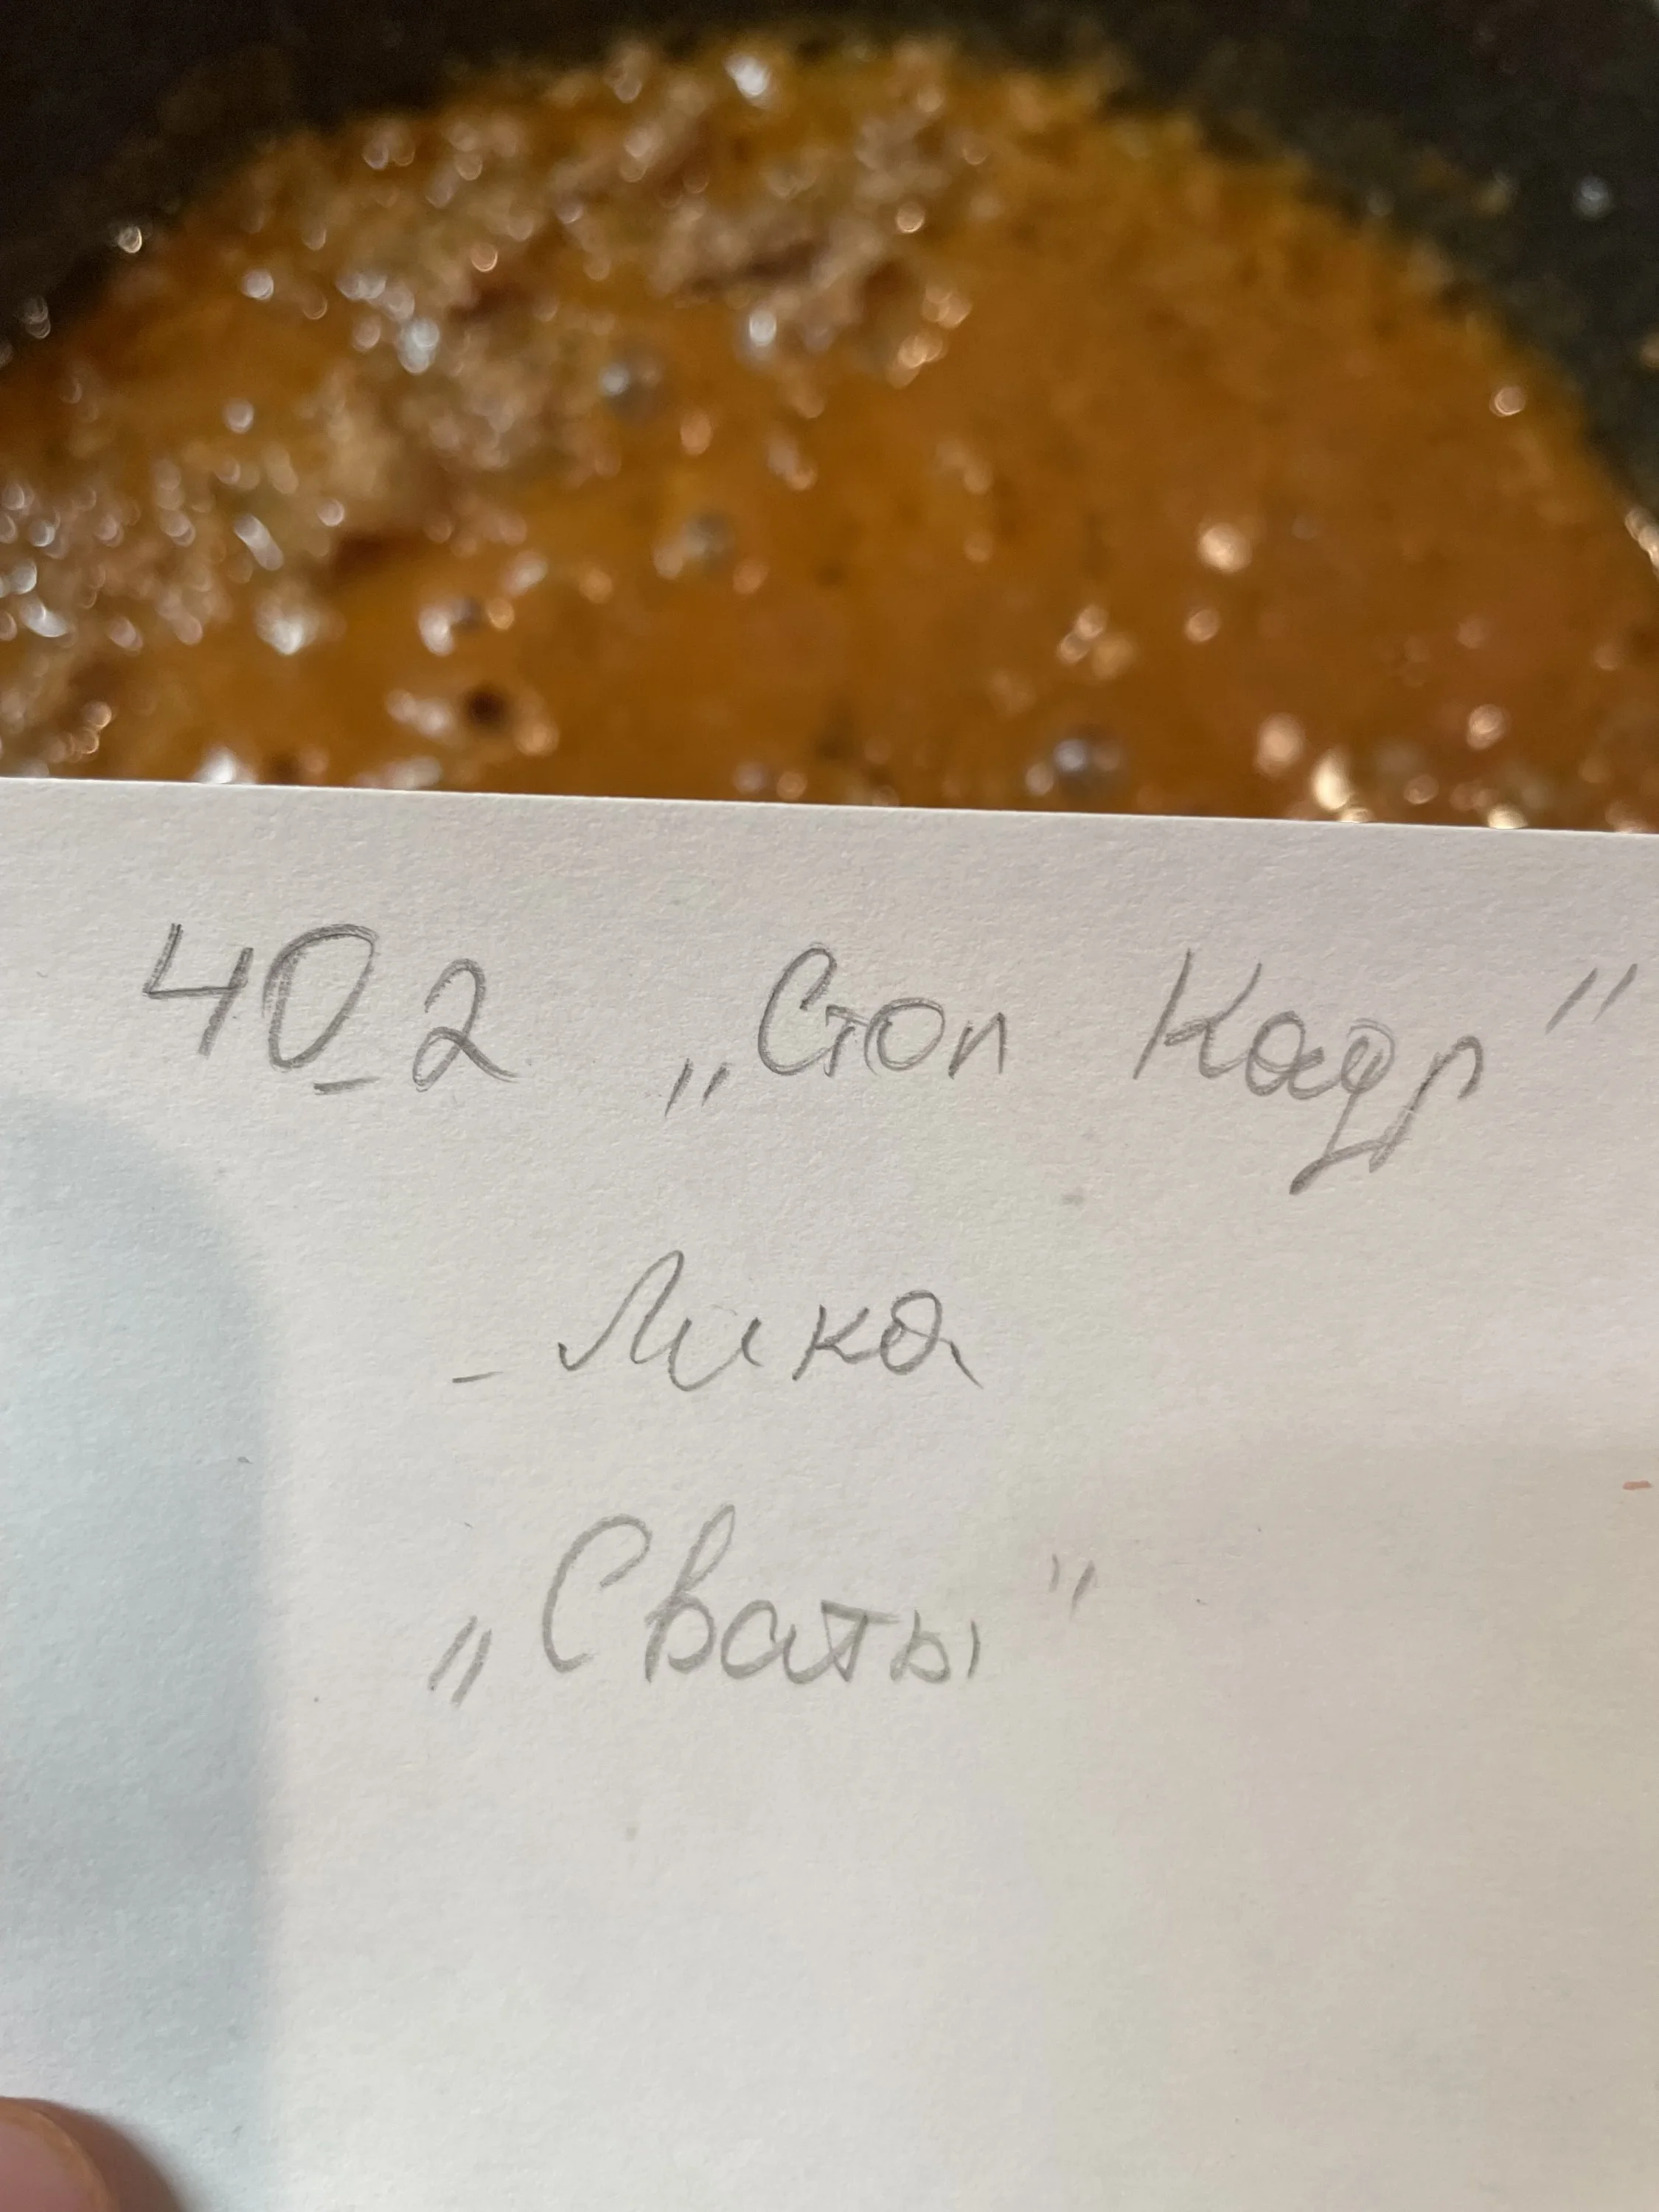 40_2 „Стоп Кадр"
- Лика
„Сваты"